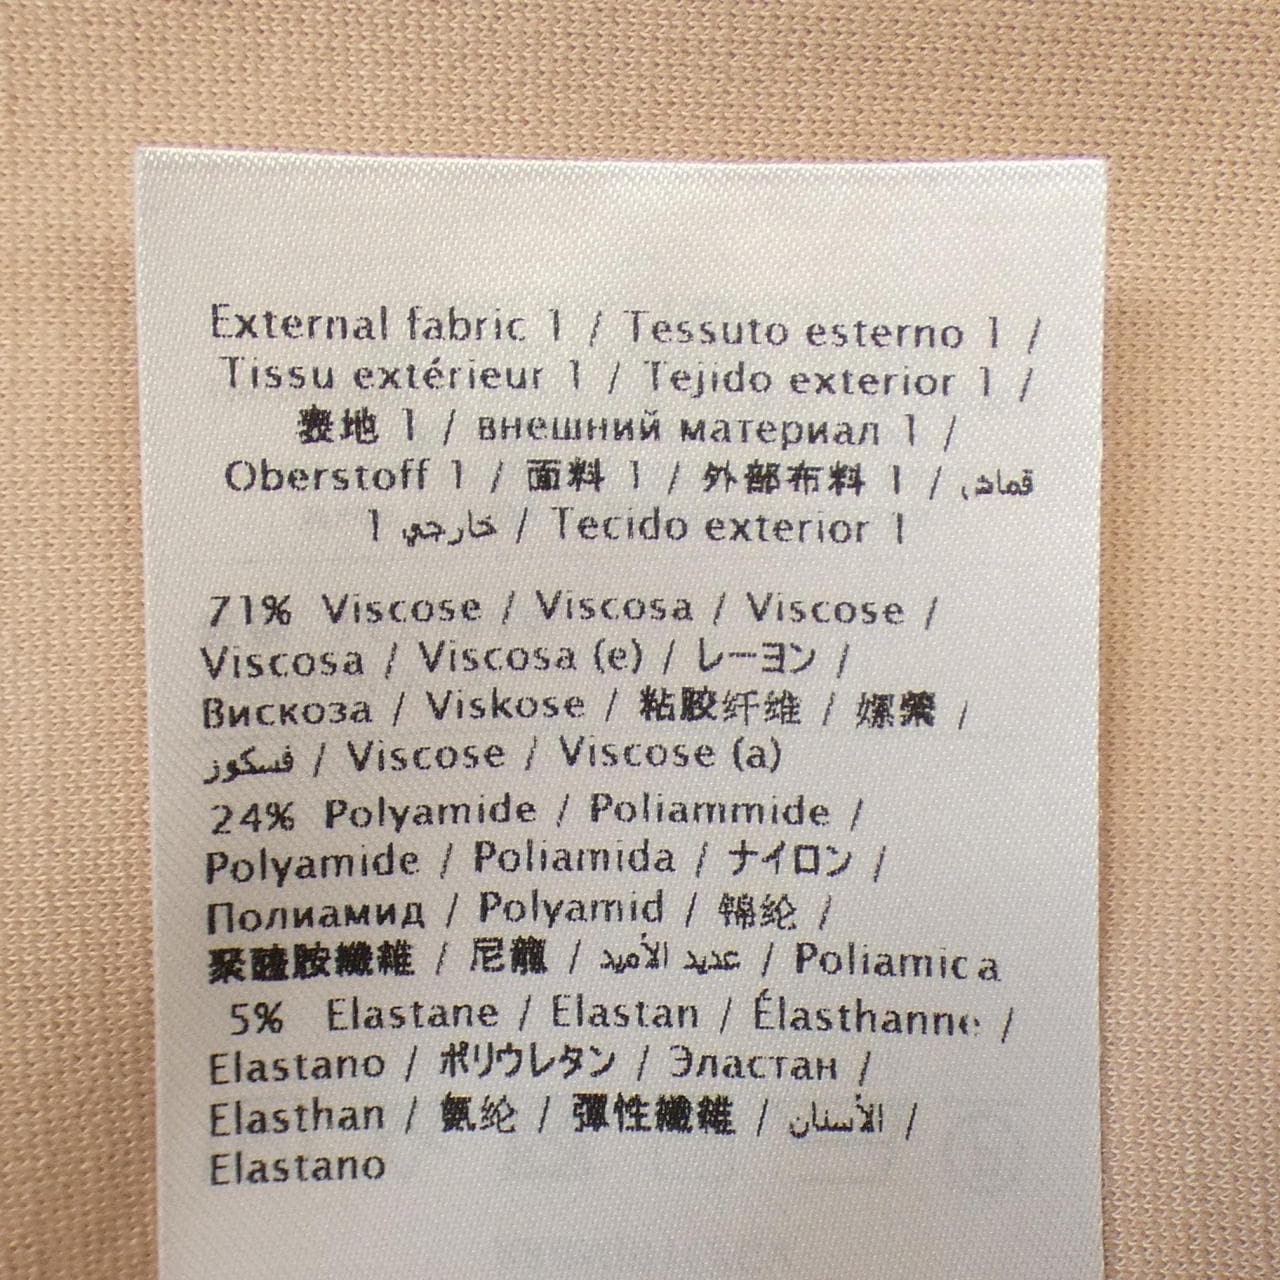 External fabric 1 / Tessuto esterno 1 /
Tissu extérieur 1 / Tejido exterior 1 /
表地 1 / внешний материал 1 /
Oberstoff 1 / 面料 1 / 外部布料 1 / قماش
خارجي 1 / Tecido exterior 1
71% Viscose / Viscosa / Viscose /
Viscosa / Viscosa (e) / レーヨン /
Вискоза / Viskose / 粘胶纤维 / 嫘縈 /
فسكوز / Viscose / Viscose (a)
24% Polyamide / Poliammide /
Polyamide / Poliamida / ナイロン /
Полиамид / Polyamid / 锦纶 /
聚醯胺纖維 / 尼龍 / عديد الأميد / Poliamica
5% Elastane / Elastan / Élasthanne /
Elastano / ポリウレタン / Эластан /
Elasthan / 氨纶 / 彈性纖維 / الأستان /
Elastano